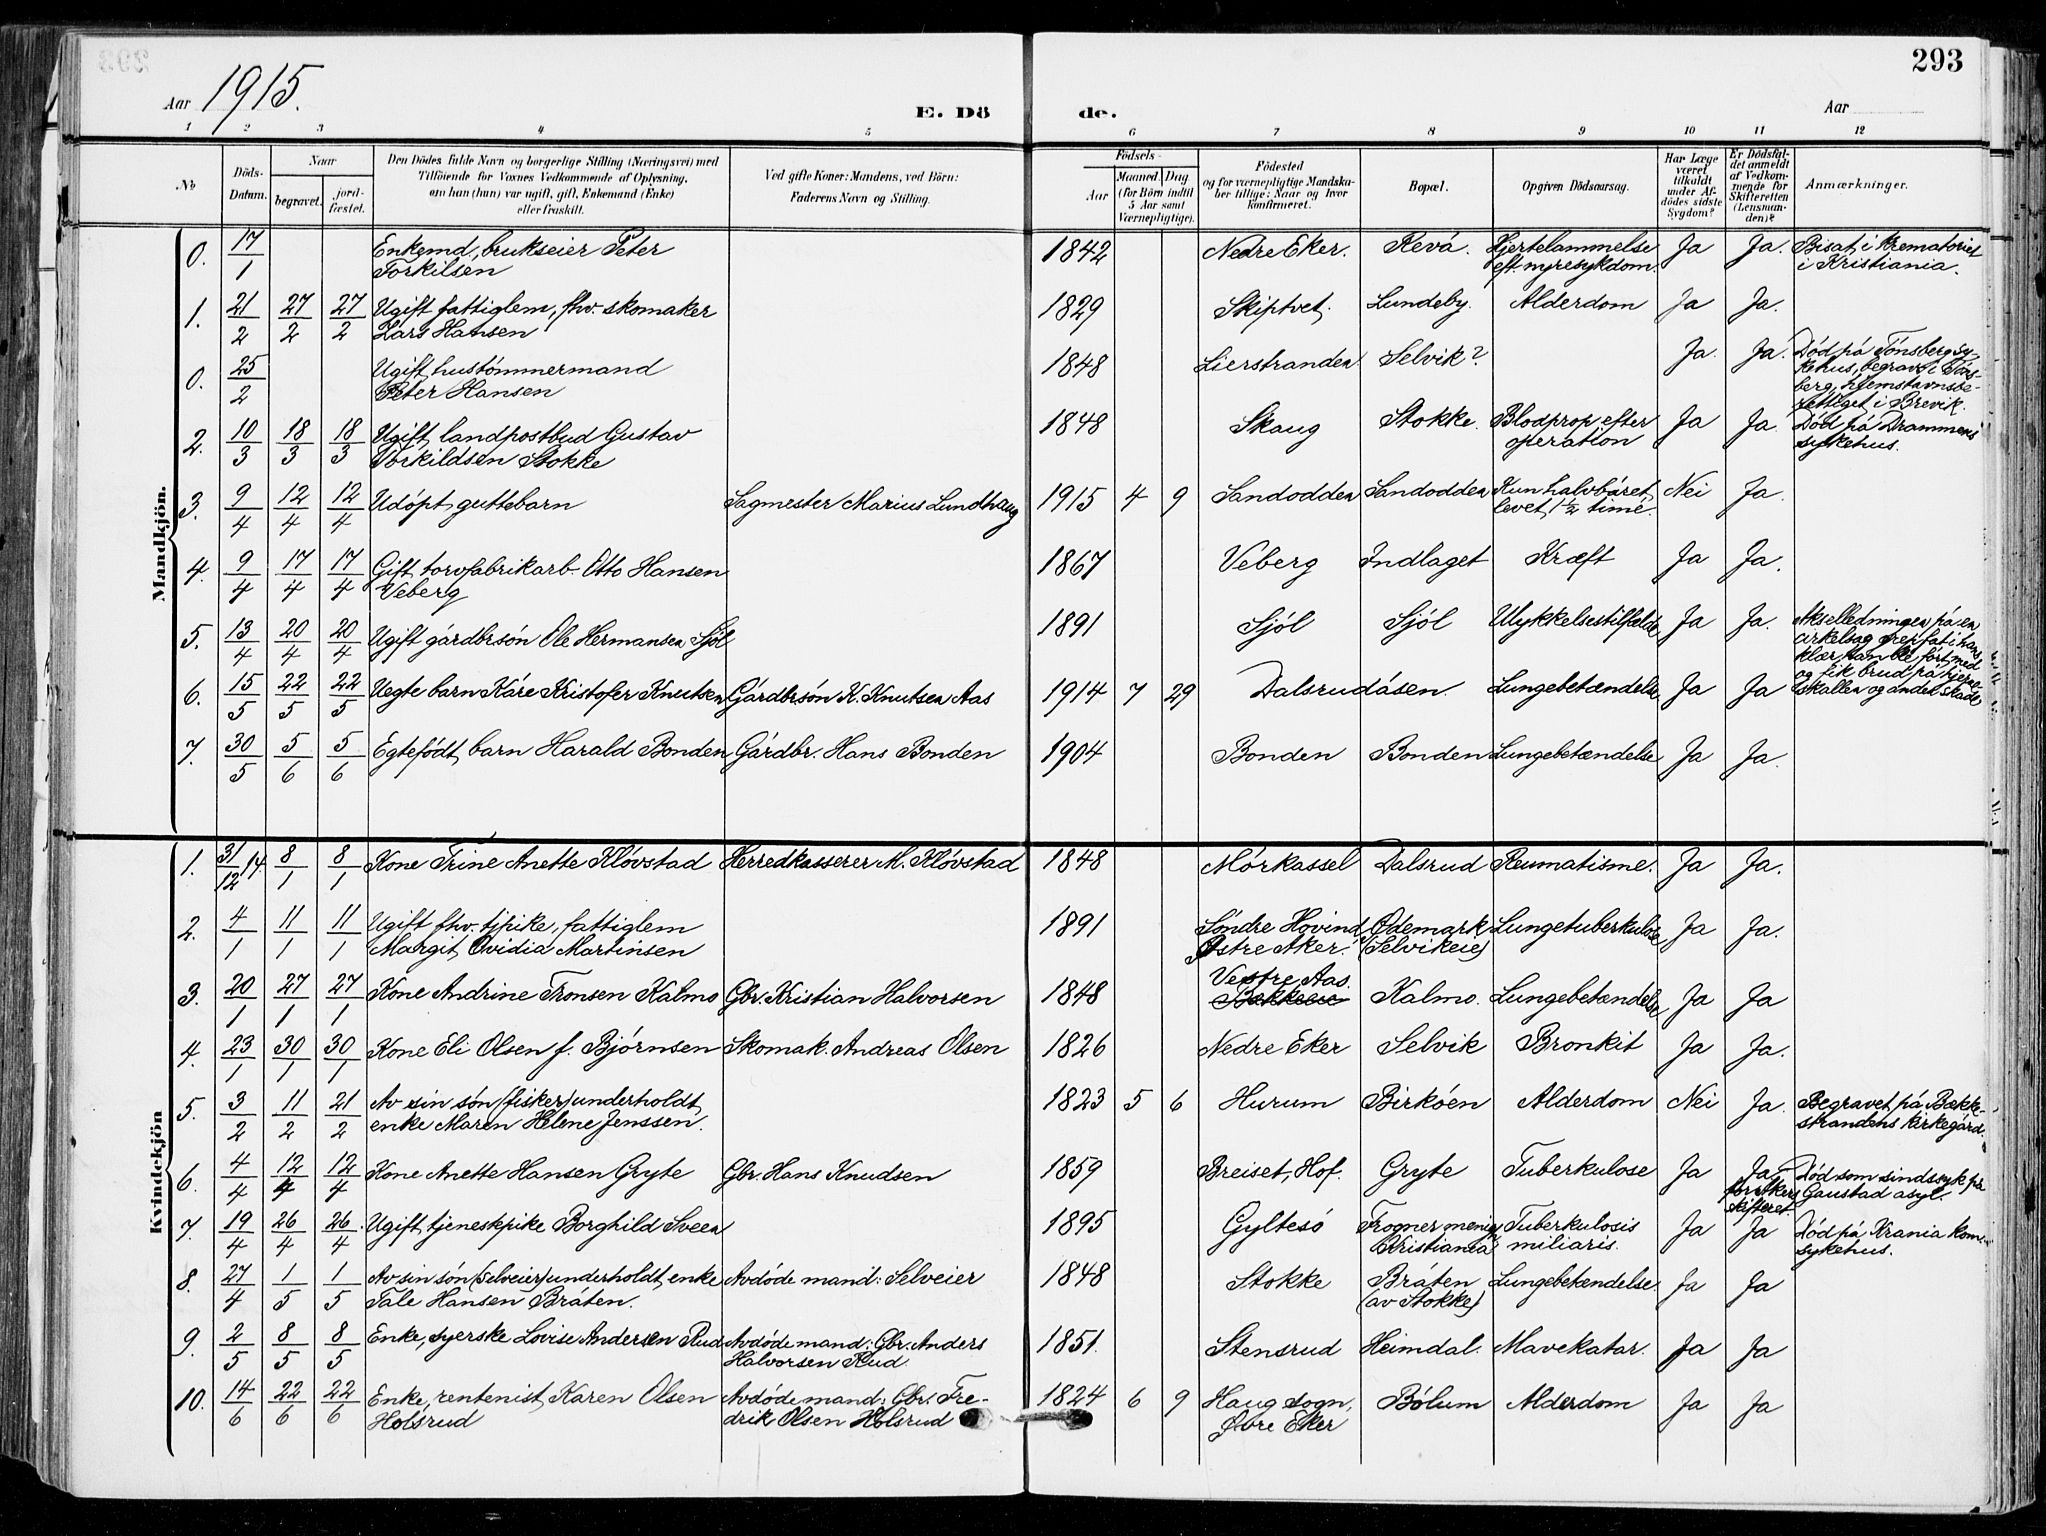 293
Aar 1915.
E. Dö de.
Aar
1 2 3 4 5 6 7 8 9 10 11 12
No
Döds-
Datum.
Naar
begravet.
jord-
fæstet.
Den Dödes fulde Navn og borgerlige Stilling (Næringsvei) med
Tilföiende for Voxnes Vedkommende af Oplysning,
om han (hun) var ugift, gift, Enkemand (Enke)
eller fraskilt.
Ved gifte Koner: Mandens, ved Börn:
Faderens Navn og Stilling.
Födsels-
Aar
Maaned. Dag
(for Börn indtil
5 Aar samt
Værnepligtige).
Födested
og for værnepligtige Mandska-
ber tillige: Naar og hvor
konfirmeret.
Bopæl.
Opgiven Dödsaarsag.
Har Læge
været
tilkaldt
under Af-
dödes sidste
Sygdom?
Er Dödsfal-
det anmeldt
af Vedkom-
mende for
Skifteretten
(Lensman-
den)?
Anmærkninger.
Mandkjön.
0. 17/1 Enkemd, brukseier Peter 1842 Nedre Eker. Revå. Hjertelammelse Ja Ja. Bisat i krematoriet
Torkilsen eft. nyresykdom. i Kristiania.
1. 21/2 27/2 27/2 Ugift fattiglem, fhv. skomaker 1829 Skiptvet. Lundeby. Alderdom Ja Ja.
Lars Hansen
0. 25/2 Ugift hustømmermand 1848 Lierstranden Selvik? Ja. Ja. Død på Tønsberg sy-
Peter Hansen kehus, begravet i Tøns-
berg, hjemstavnsbe-
rettiget i Brevik.
2. 10/3 18/3 18/3 Ugift landpostbud Gustav 1848 Skaug Stokke. Blodprop efter Ja Ja. Død på Drammens
Torkildsen Stokke operation sykehus.
3. 9/4 12/4 12/4 Udøpt guttebarn Sagmester Marius Lundhaug 1915 4 9 Sandodden Sandodden Kun halvbåret, Nei Ja.
levet 1½ time.
4. 9/4 17/4 17/4 Gift torvfabrikarb. Otto Hansen 1867 Veberg Indlaget Kræft Ja Ja.
Veberg
5. 13/4 20/4 20/4 Ugift gårdbrsøn Ole Hermansen Sjøl 1891 Sjøl Sjøl Ulykkelsestilfælde Ja Ja. Akselledningen på en
cirkelsag grep fat i hans
klær, han ble ført med
og fik brud på hjerne-
skallen og andet skade
6. 15/5 22/5 22/5 Uegte barn Kåre Kristofer Knutsen Gårdbrsøn K. Knutsen Aas 1914 7 29 Dalsrudåsen. Lungebetændelse Ja Ja
7. 30/5 5/6 5/6 Egtefødt barn Harald Bonden Gårdbr. Hans Bonden 1904 Bonden Bonden Lungebetændelse Ja Ja.
Kvindekjön
1. 31/12 14. 8/1 8/1 Kone Trine Anette Kløvstad Herredkasserer M. Kløvstad 1848 Mørkassel Dalsrud Reumatisme. Ja Ja.
2. 4/1 11/1 11/1 Ugift fhv. tjpike, fattiglem 1891 Søndre Hovind Ødemark Lungetuberkulose Ja Ja.
Margit Ovidia Martinsen Østre Aker. (Selvikeie)
Vestre Aas.
3. 20/1 27/1 27/1 Kone Andrine Tronsen Kalmo Gbr. Kristian Halvorsen 1848 Kalmo. Lungebetændelse Ja Ja
4. 23/1 30/1 30/1 Kone Eli Olsen f. Bjørnsen Skomak. Andreas Olsen 1826 Nedre Eker Selvik Bronkit Ja Ja.
5. 3/2 11/2 21/2 Av sin søn (fisker) underholdt 1823 5 6 Hurum Birkøen Alderdom Nei Ja. Begravet på Bække-
enke Maren Helene Jenssen. strandens kirkegård.
6. 4/4 12/4 12/4 Kone Anette Hansen Gryte Gbr. Hans Knudsen 1859 Breiset, Hof. Gryte Tuberkulose Ja Ja, Død som sindssyk på
for Akers Gaustad asyl.
skifteret.
7. 19/4 26/4 26/4 Ugift tjenestpike Borghild Sveen 1895 Gyltesø Frogner menig Tuberkulosis Ja Ja Død på Krania kom.
Kristiania miliaris. sykehus.
8. 27/4 1/5 1/5 Av sin søn (selveier) underholdt enke Avdøde mand: Selveier 1848 Stokke Bråten Lungebetændelse. Ja Ja
Tale Hansen Bråten. (av Stokke)
9. 2/5 8/5 8/5 Enke, syerske Lovise Andersen Rud Avdøde mand: Gbr. Anders 1851. Stensrud Heimdal. Mavekatar. Ja Ja
Halvorsen Rud.
10. 14/6 22/6 22/6 Enke, rentenist Karen Olsen Avdøde mand: Gbr. Fre- 1824 6 9 Haug sogn, Bølum Alderdom Ja Ja
Holsrud drik Olsen Holsrud Øvre Eker